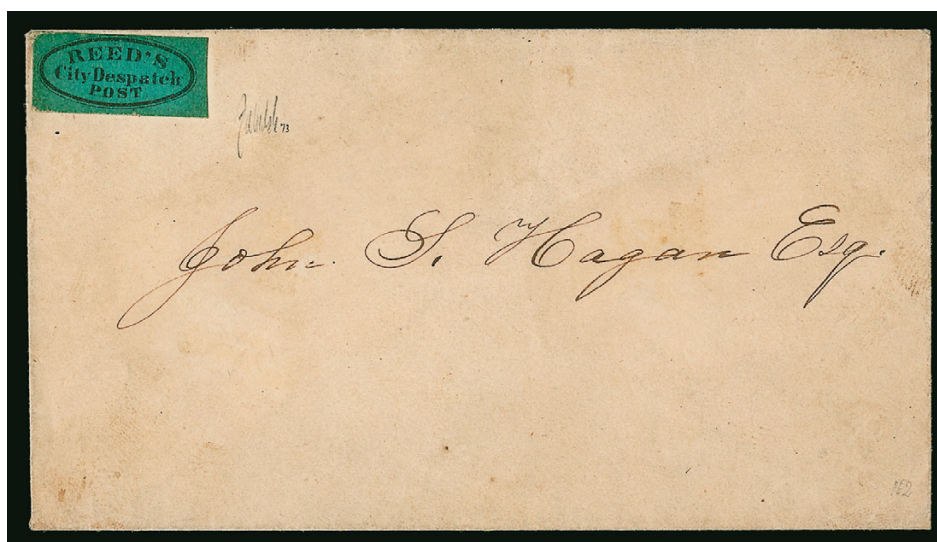 REED'S
City Despatch
POST
John S. Hagan Esq.